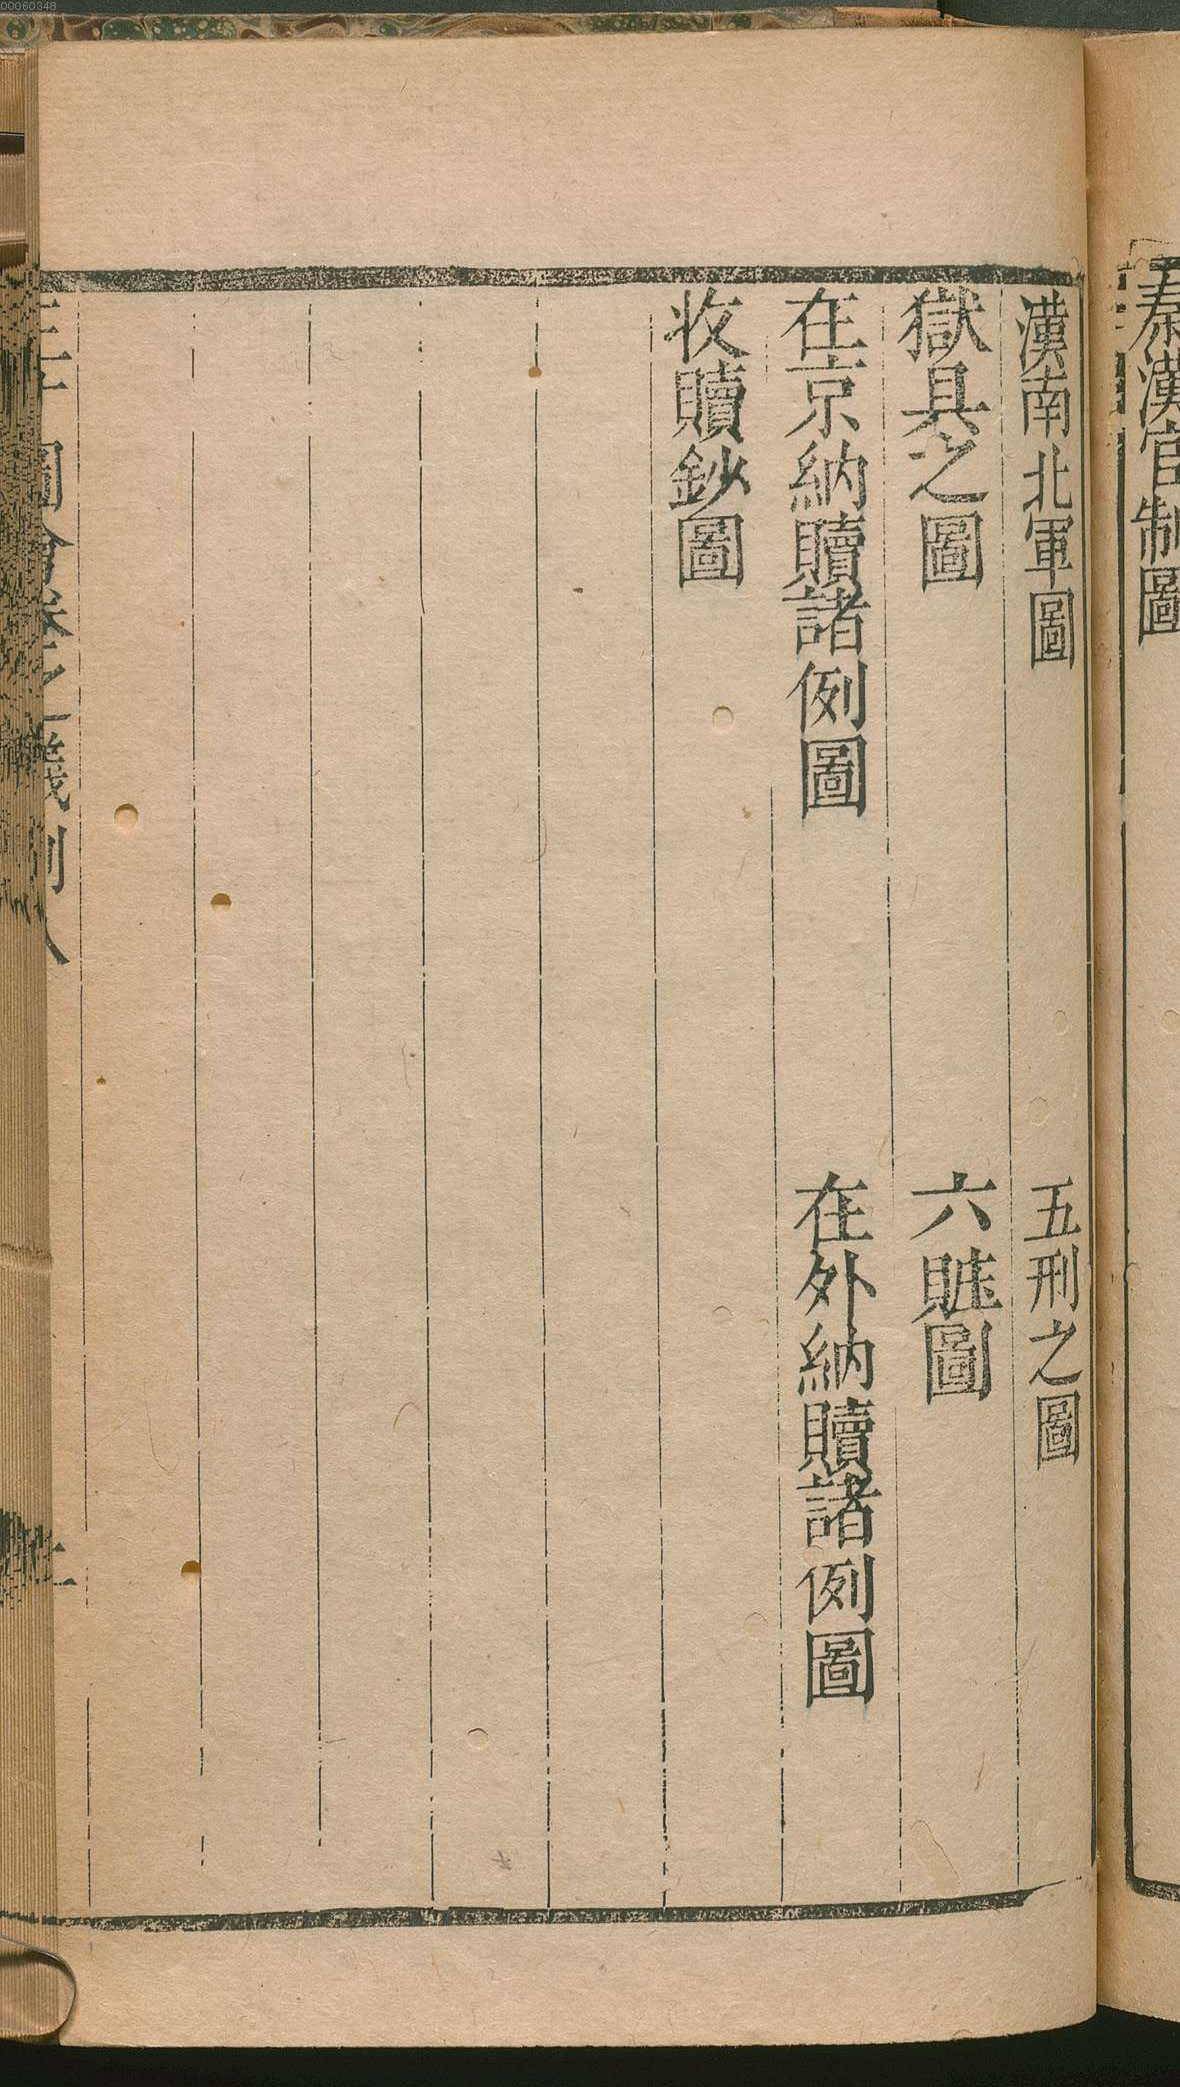 秦漢官制圖
漢南北軍圖
五刑之圖
獄具之圖
六賍圖
在京納贖諸例圖
在外納贖諸例圖
收贖鈔圖
00060348